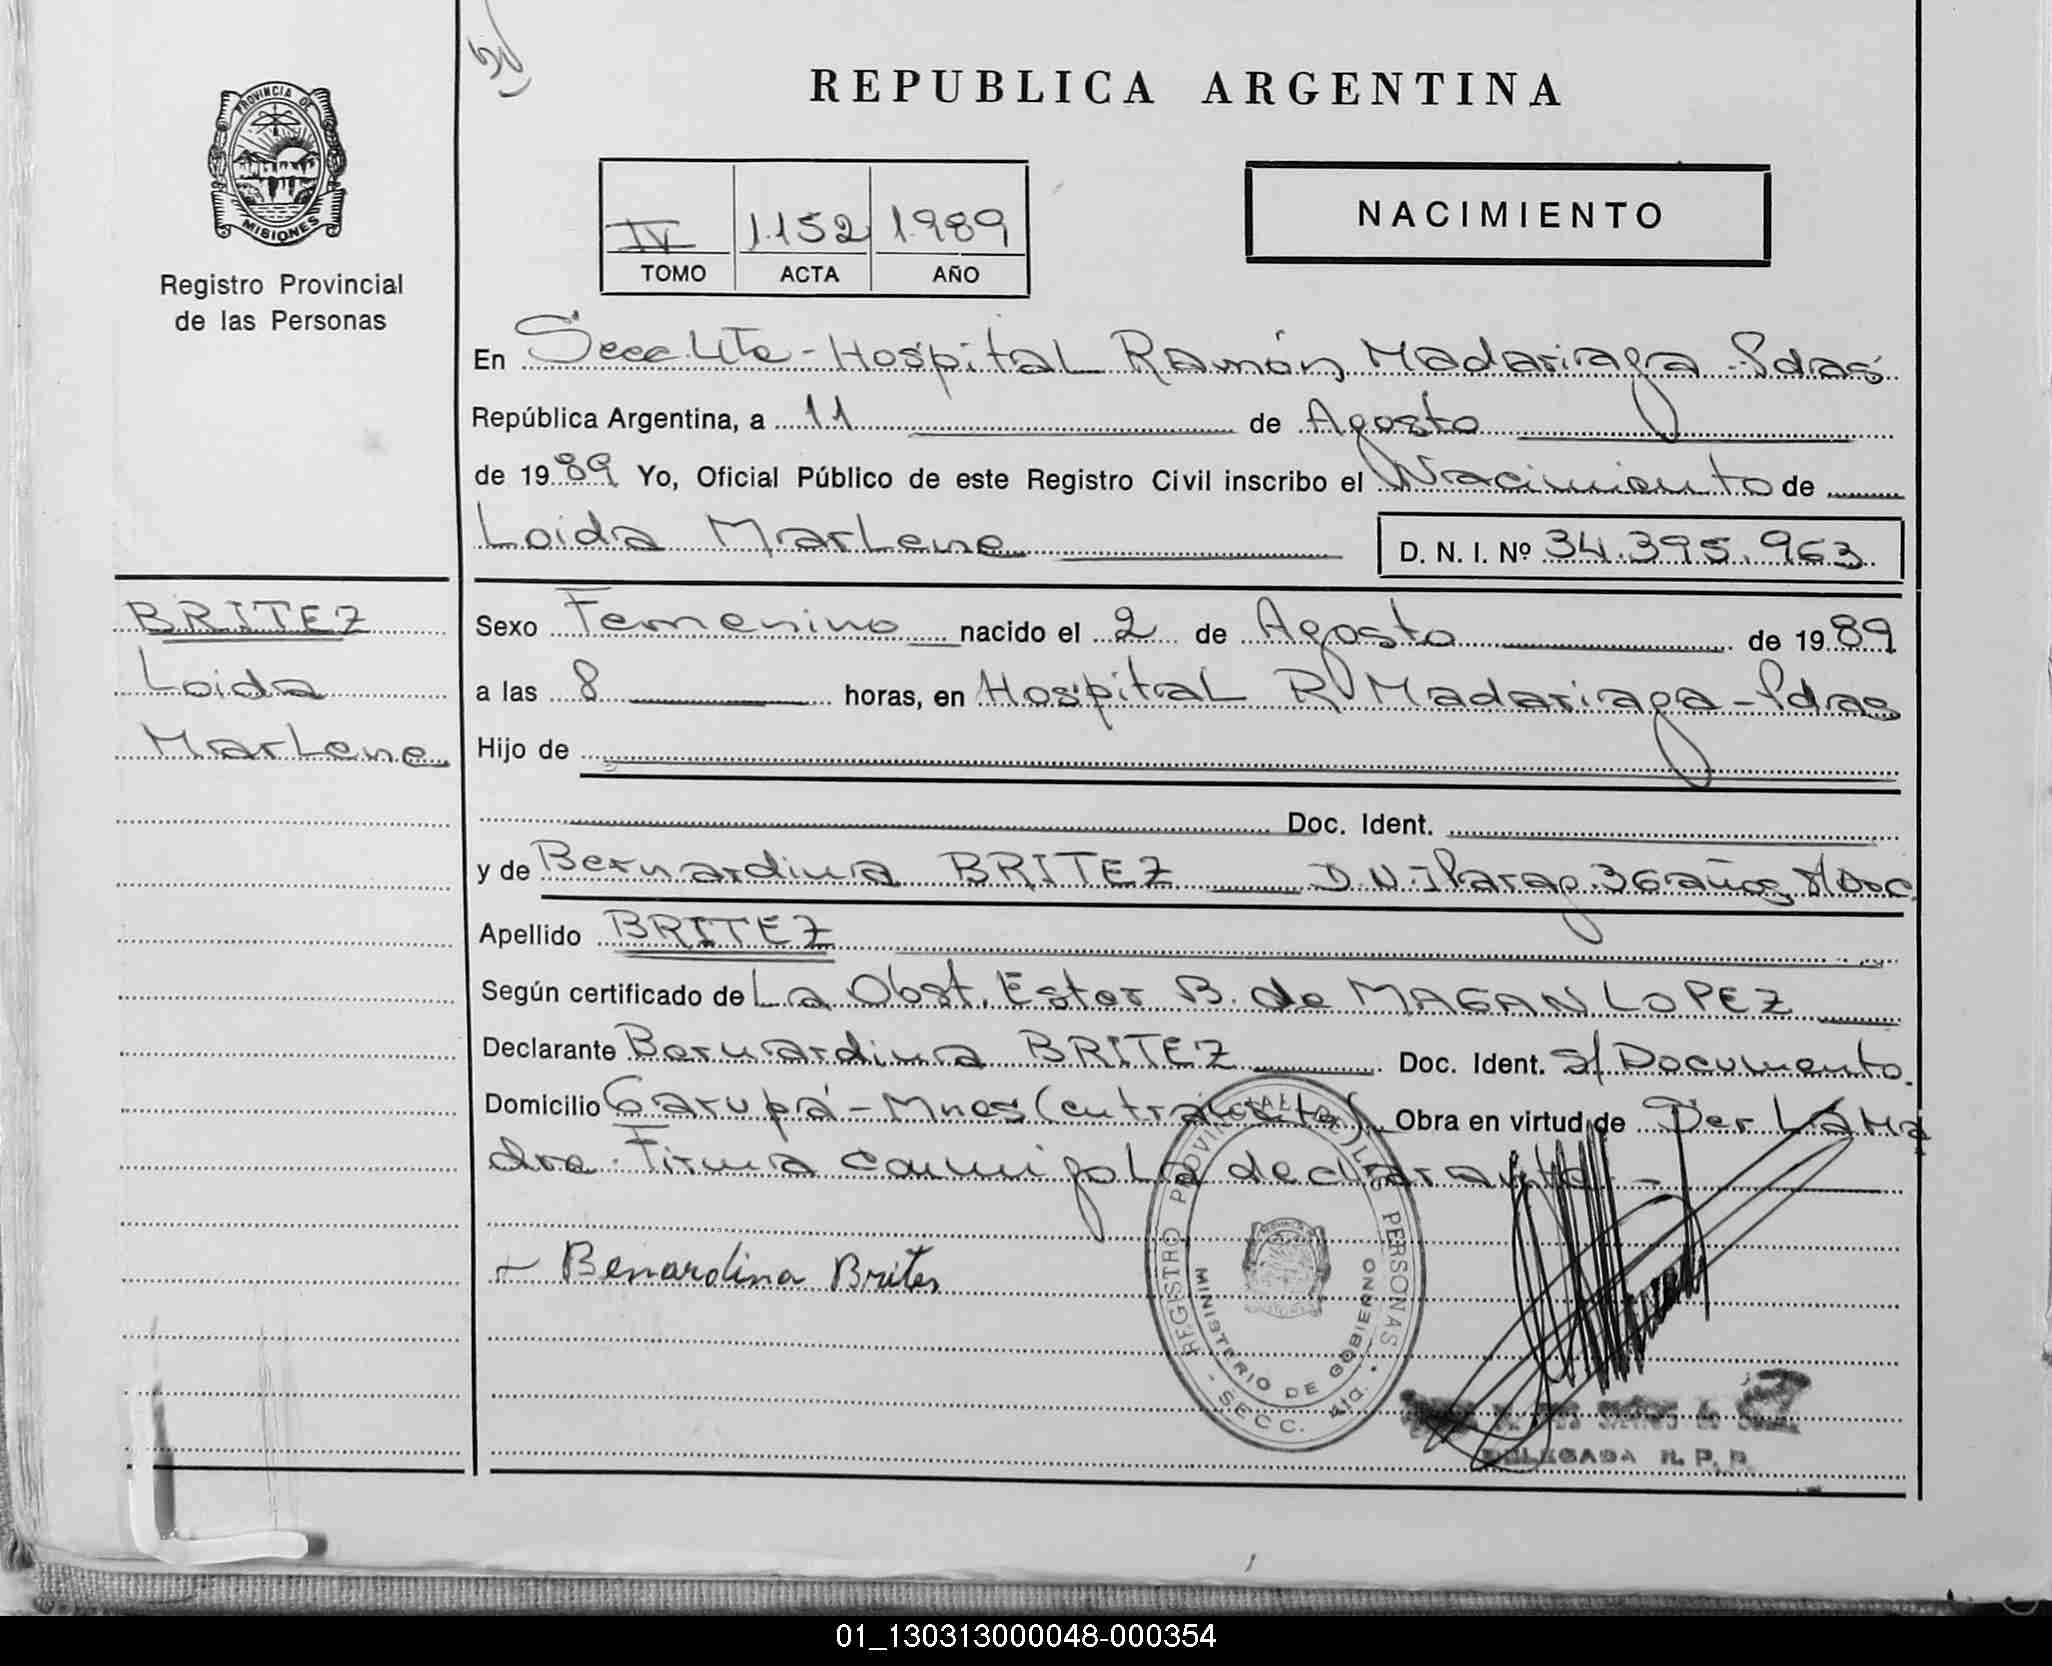 REPUBLICA ARGENTINA
PROVINCIA DE
MISIONES
Registro Provincial
de las Personas
IV 1152 1989
TOMO ACTA AÑO
NACIMIENTO
En Secc. 4ta - Hospital Ramón Madariaga - Pdas
República Argentina, a 11 de Agosto
de 1989 Yo, Oficial Público de este Registro Civil inscribo el Nacimiento de
Loida Marlene
D. N. I. Nº 34.395.963
BRITEZ
Loida
Marlene
Sexo Femenino nacido el 2 de Agosto de 1989
a las 8 horas, en Hospital R. Madariaga - Pdas
Hijo de
Doc. Ident.
y de Bernardina BRITEZ D.N.I Parag. 36 años, s/ Doc.
Apellido BRITEZ
Según certificado de La Obst. Ester B. de MAGAN LOPEZ
Declarante Bernardina BRITEZ Doc. Ident. s/ Documento.
Domicilio Garupá - Mnes Obra en virtud de Ser La Ma
dre. Firma conmigo la declarante -
Benardina Britez
REGISTRO PROVINCIAL DE LAS PERSONAS
MINISTERIO DE GOBIERNO
SECC. 4ta.
DELEGADA R. P. P.
01_130313000048-000354